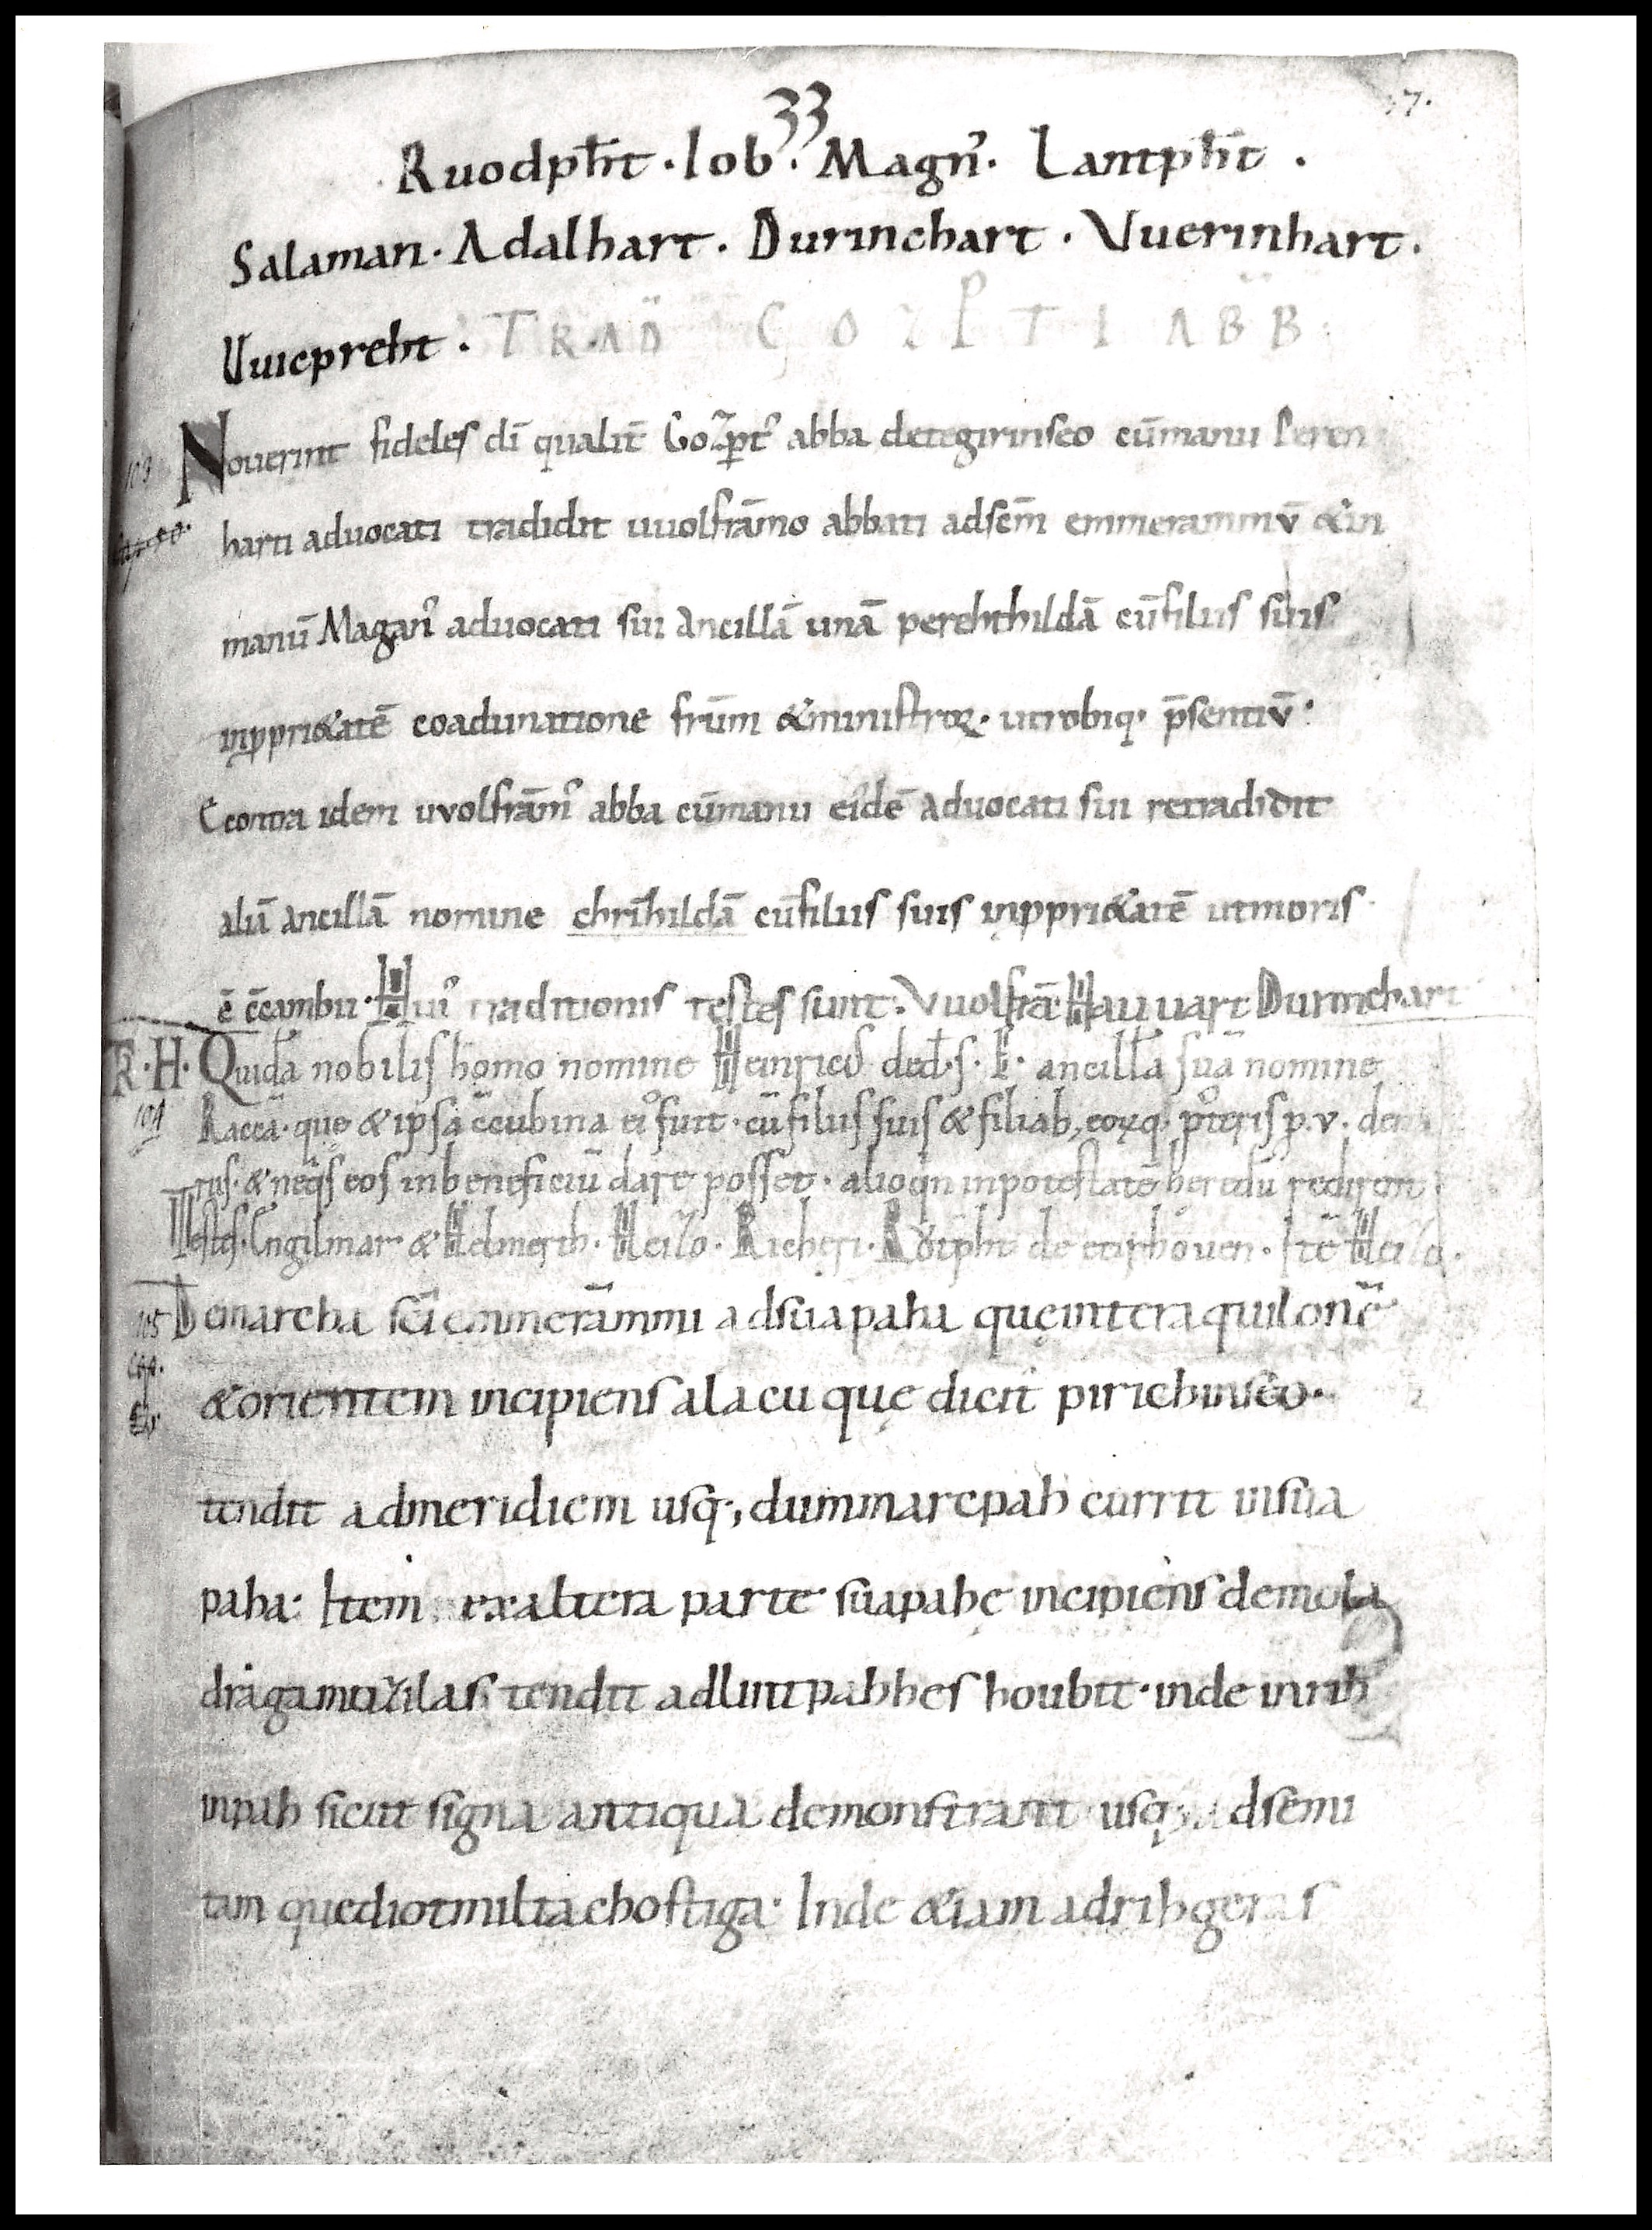 33
Ruodpħt · Iob · Magn᾽ · Lantpħt ·
Salaman · Adalhart · Durinchart · Vuerinhart ·
Vuicpreht · TRAD GOZPTI ABB
103 Nouerint fideles dī qualit̄ Gozpt᾽ abba detegirinseo cūmanu Peren
harti aduocati tradidit uuolfrāmo abbati adscm̄ emmerammū &in
manū Magan᾽ aduocati sui Ancillā unā perehthildā cūfiliis suis
inppri&atē coadunatione frūm &ministroꝝ · utrobiq· p̄sentiū·
Econtra idem uvolfrām᾽ abba cūmanu ei᾽dē Aduocati sui retradidit
aliā ancillā nomine chrīhildā cūfiliis suis inppri&atē utmoris
ē c̄cambii · Hui᾽ traditionis testes sunt · Vuolfrā · Hauuart Durinchart
T̄R · H · Quidā nobilis homo nomine Heinric᾽ ded̄ · s · E · ancillā suā nomine
104 Raccā · quę & ipsa c̄cubina ei᾽ fuit · cū filiis suis & filiab; eoꝝq· pōteris p · v · den
rios · & neq̄s eos inbeneficiū dare posset · alioqn̄ inpotestatē heredū redirent
Testes · Engilmar & Helmerih · Heilo · Richeri · Rͦtp̄ht de etirhouen · Itē Heilo ·
105 Demarcha sc̄i emmerāmmi adsuapaha quęinteraquilonē
&orientem incipiens alacu quę dicit᾽ pirichinseo ·
tendit admeridiem usq·; dummarcpah currit insua
paha · Item exaltera parte suapahę incipiens demola
dragamuzilas tendit adlintpahhes houbit · inde inrih
inpah sicut signa antiqua demonstrant usq; adsemi
tam quediotmiltachostiga · Inde &iam adrihgeras